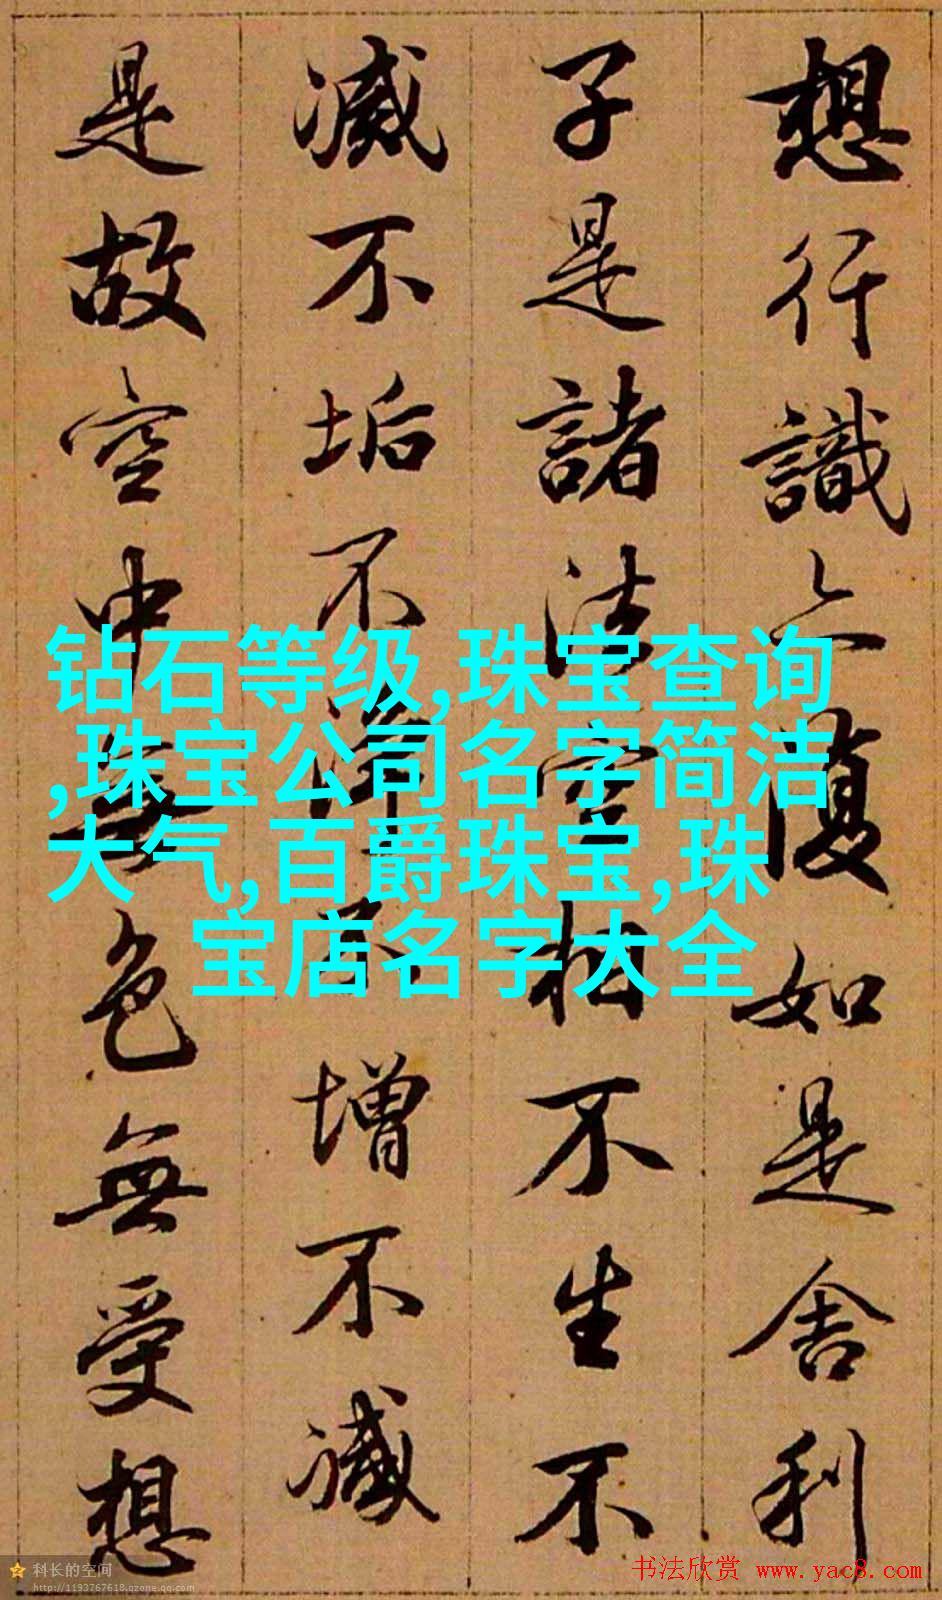 想行識亦復如是舍利
子是諸法空相不生不
滅不垢不淨不增不減
是故空中無色無受想
钻石等级,珠宝查询
,珠宝公司名字简洁
大气,百爵珠宝,珠
宝店名字大全
科长的空间
http://1193767618.qzone.qq.com
书法欣赏 www.yac8.com